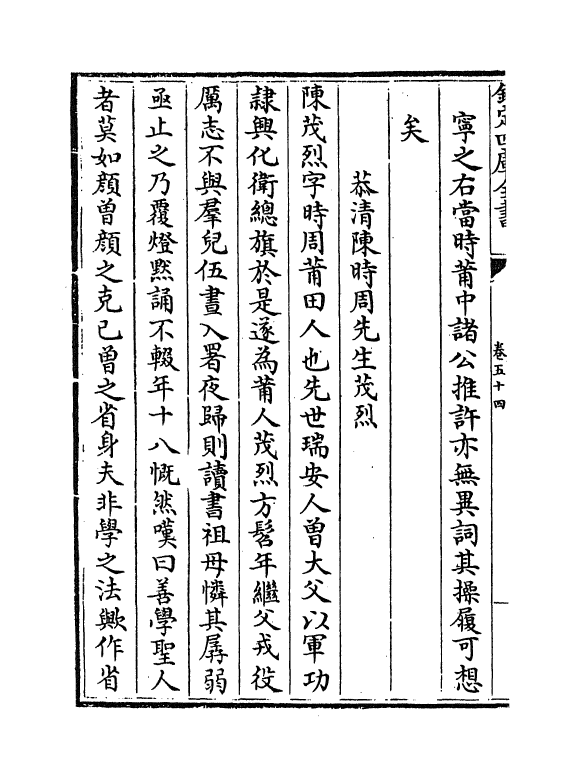 欽定四庫全書
卷五十四
寧之右當時莆中諸公推許亦無異詞其操履可想
矣
恭清陳時周先生茂烈
陳茂烈字時周莆田人也先世瑞安人曾大父以軍功
隷興化衛總旗於是遂為莆人茂烈方髫年繼父戎役
厲志不與羣兒伍晝入署夜歸則讀書祖母憐其孱弱
亟止之乃覆燈黙誦不輟年十八慨然嘆曰善學聖人
者莫如顔曾顔之克已曾之省身夫非學之法歟作省